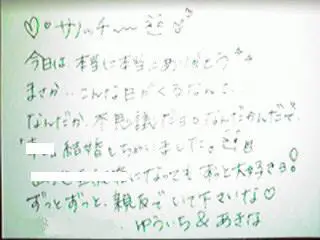 ♡サッチ〜
今日は本当に本当にありがとう
まさか…こんな日がくるなんて
なんだか不思議だョなんだかんだで
結婚しちゃいました。
になっても ずっと大好きョ!
ずっとずっと、親友でいて下さいな♡
ゆういち&あきな